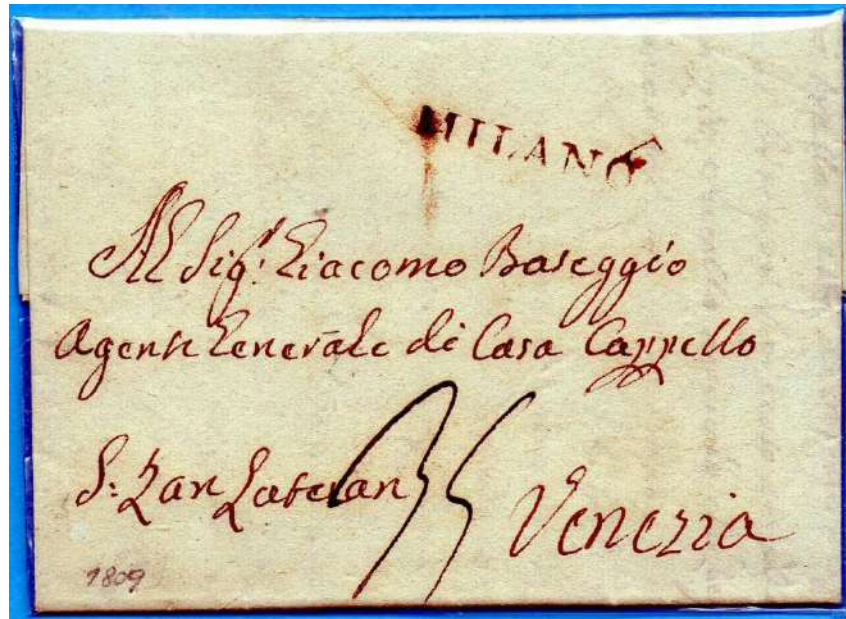 MILANO
Al Sigr. Giacomo Baseggio
Agente Generale di Casa Cappello
S: Zan Lateran 35 Venezia
1809